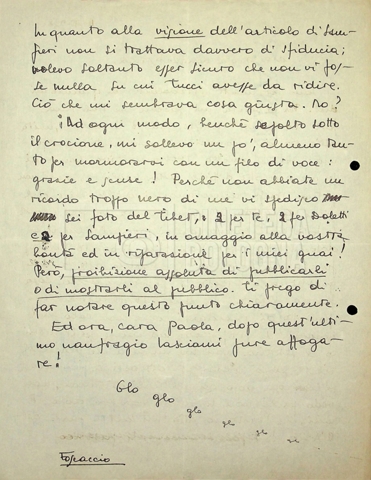 In quanto alla visione dell'articolo di Sam-
pieri non si trattava davvero di sfiducia;
volevo soltanto esser sicuro che non vi fos-
se nulla su cui Tucci avesse da ridire.
Ciò che mi sembrava cosa giusta. No?
Ad ogni modo, benchè sepolto sotto
il crocione, mi sollevo un po', almeno tan-
to per mormorarvi con un filo di voce:
grazie e scuse! Perchè non abbiate un
ricordo troppo nero di me vi spedisco
sei foto del Tibet, 2 per te, 2 per Doletti
e 2 per Sampieri, in omaggio alla vostra
bontà ed in riparazione per i miei guai!
Però, proibizione assoluta di pubblicarli
o di mostrarli al pubblico. Ti prego di
far notare questo punto chiaramente.
Ed ora, cara Paola, dopo quest'ulti-
mo naufragio lasciami pure affoga-
re!
Glo
glo
glo
gl
gl
Foscaccio